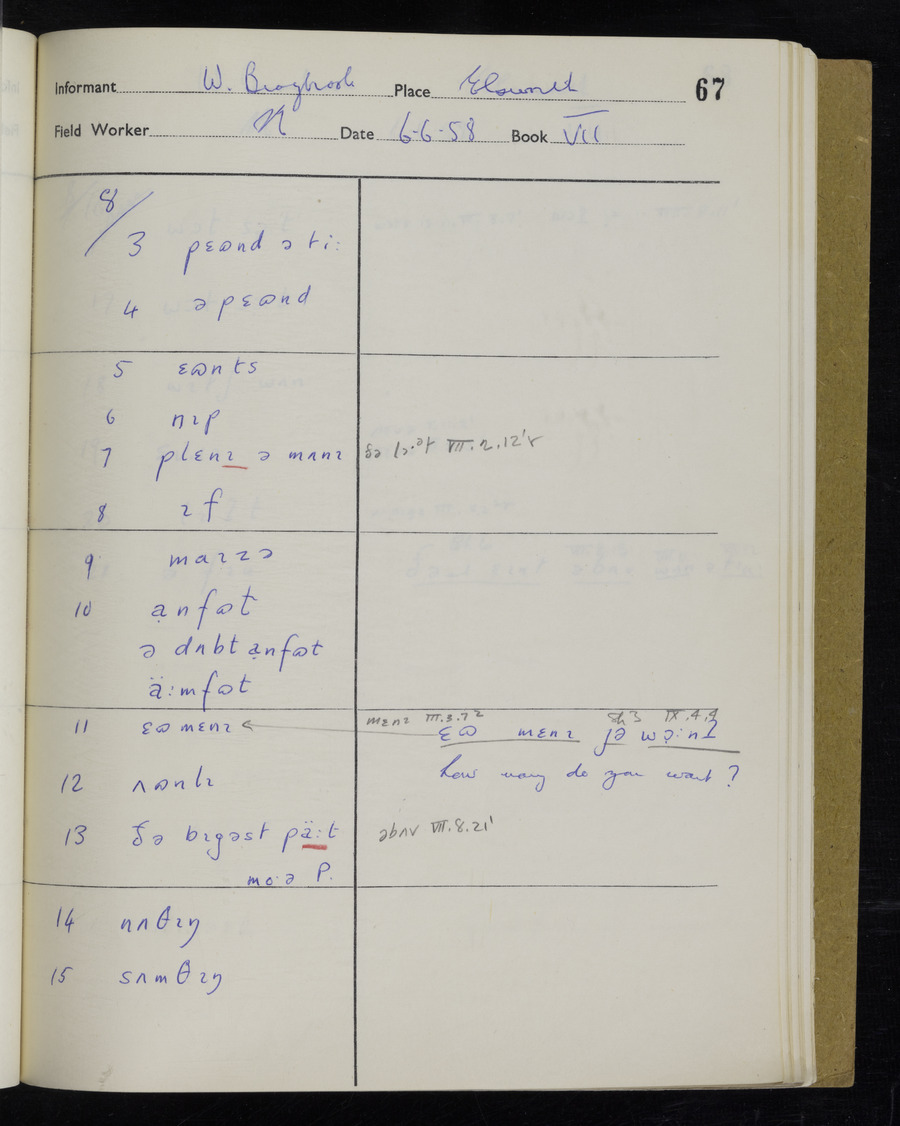 Informant W. Braybrook Place Elsworth 67
Field Worker N Date 6-6-58 Book VII
8/
3 pɛɷnd ə ti:
4 ə pɛɷnd
5 ɛɷnts
6 nɪp
7 plɛnɪ ə mʌnɪ
8 ɪf
9 maɪzə
10 ạnfɷt
ə dʌbt ạnfɷt
ä:mfɷt
11 ɛɷ mɛnɪ mɛnɪ III.3.7² IX.4.4
ɛɷ mɛnɪ jə wɔ̣:nt
how many do you want ?
12 ʌɷnlɪ
13 ðə bɪgəst pä:t əbʌv VII.8.21'
mo·ə p.
14 nʌθɪŋ
15 sʌmθɪŋ